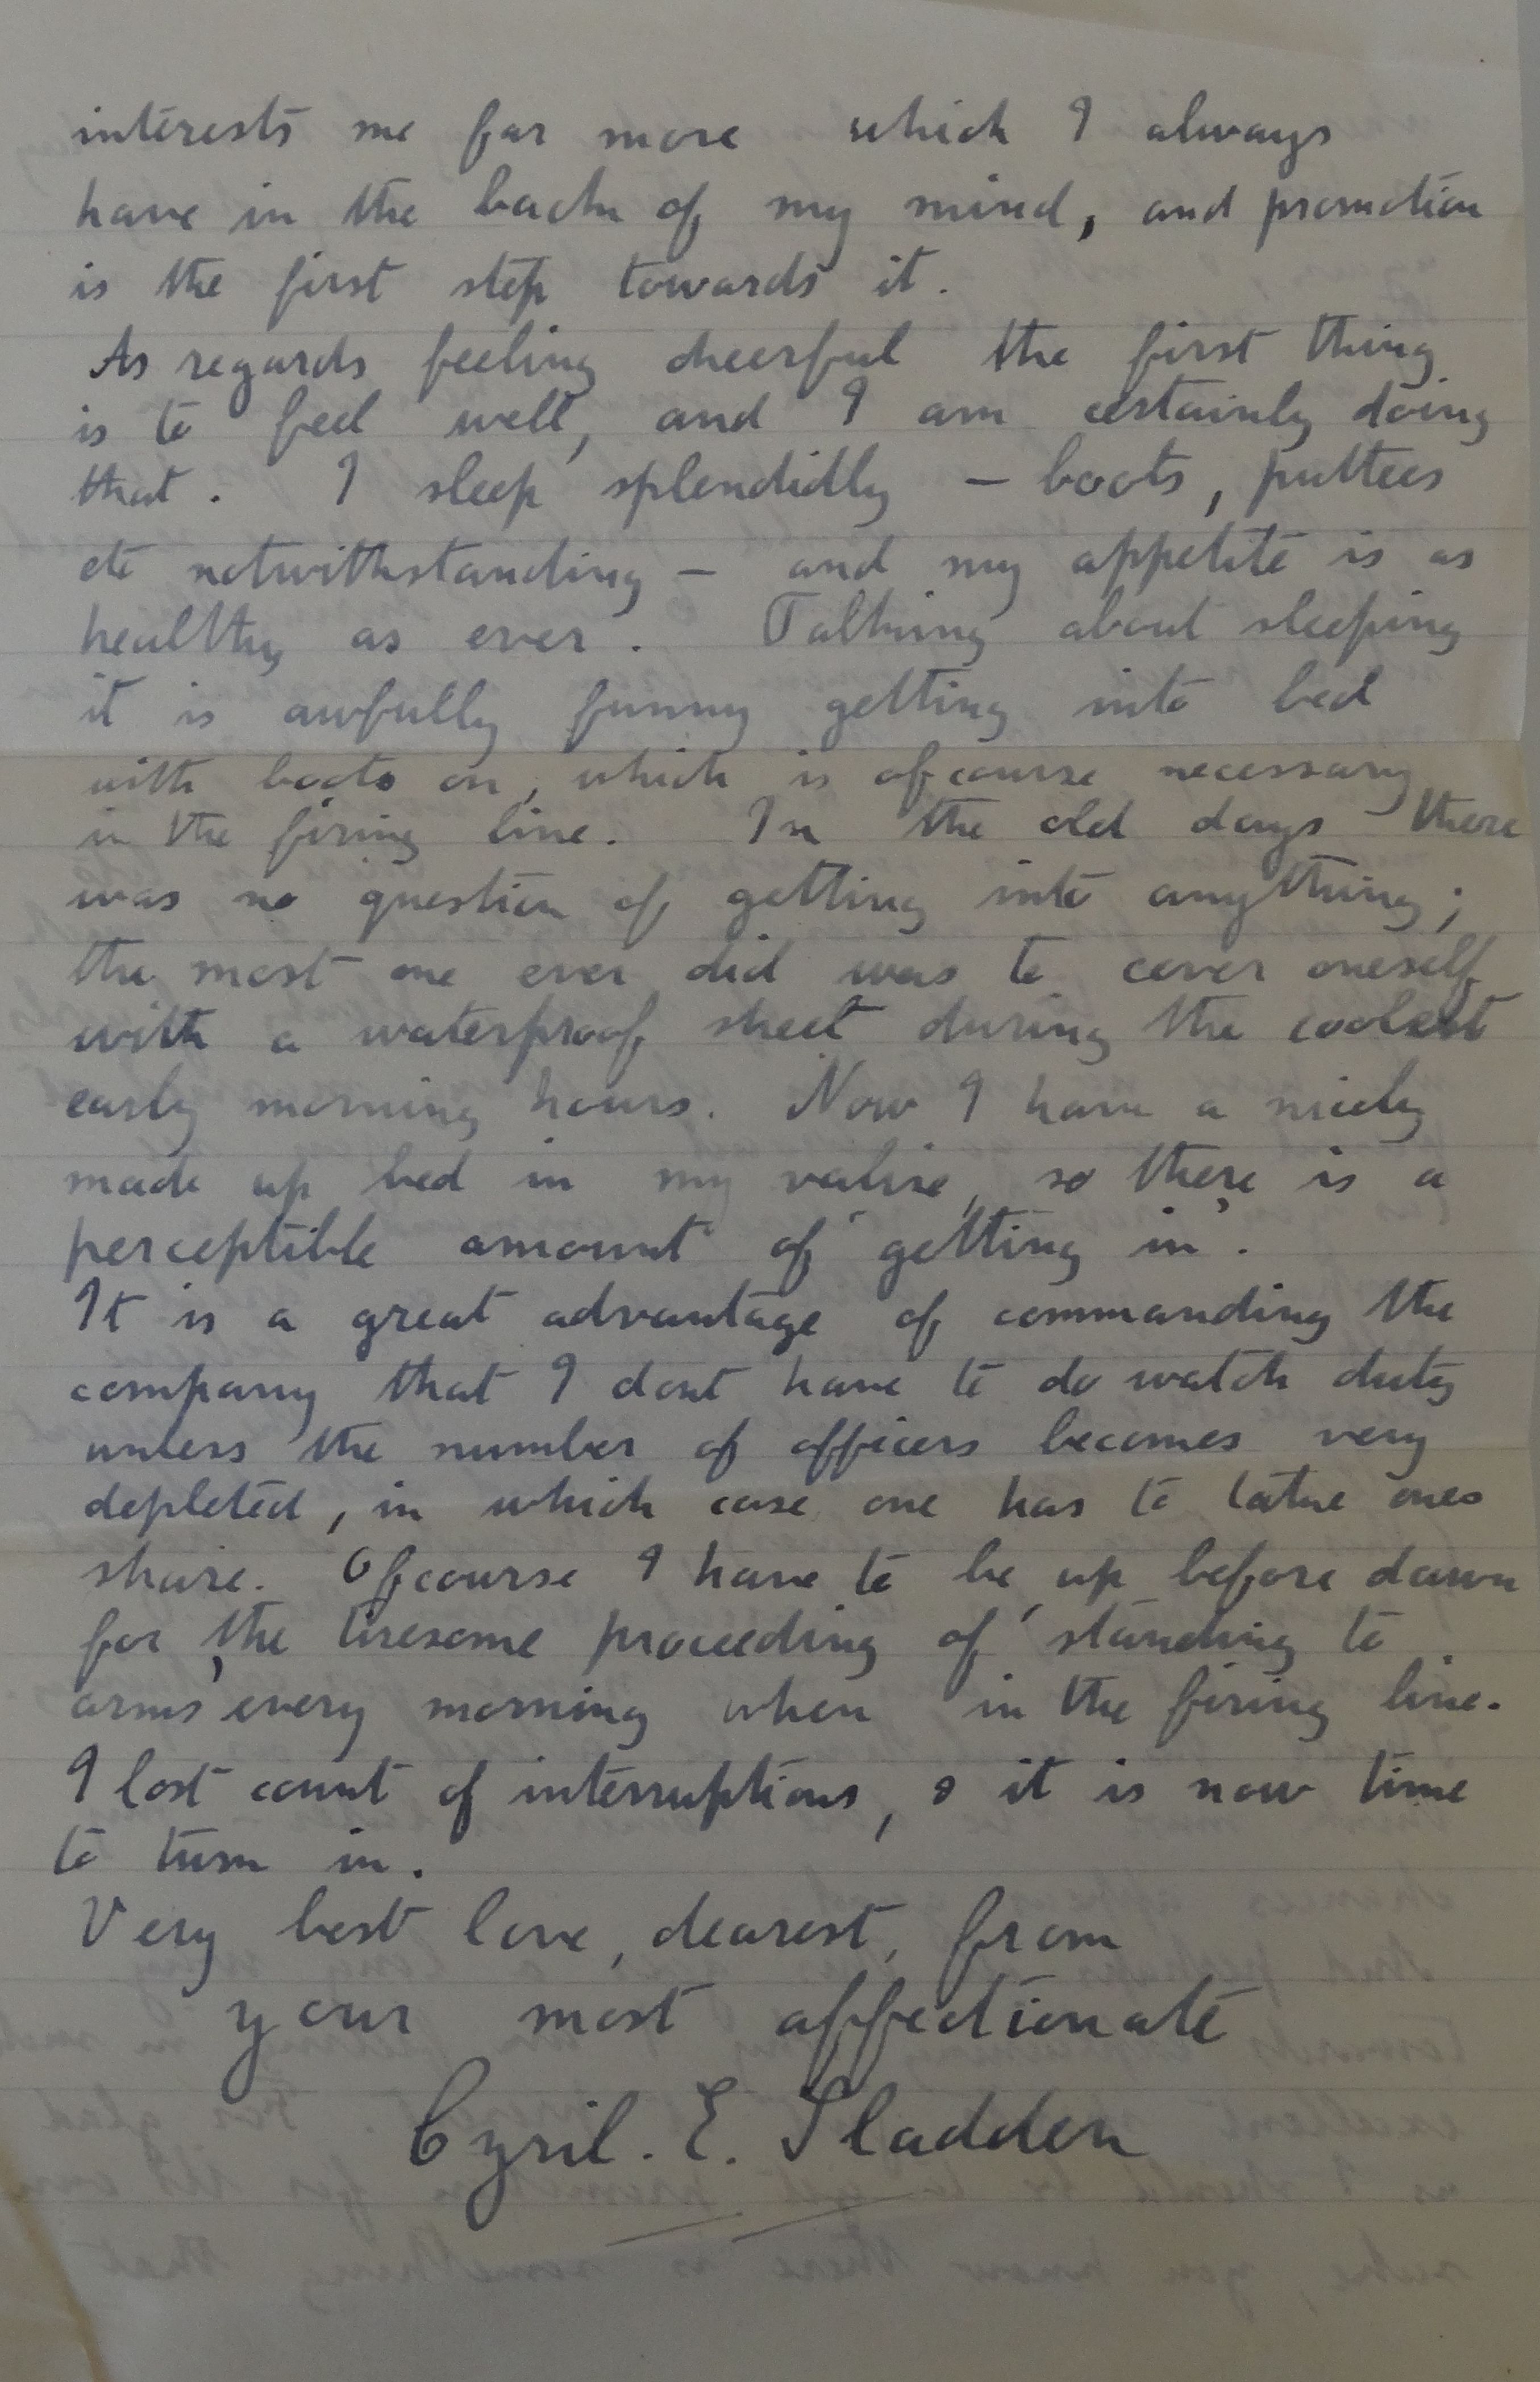 interests me far more which I always
have in the back of my mind, and promotion
is the first step towards it.
As regards feeling cheerful the first thing
is to feel well, and I am certainly doing
that. I sleep splendidly – boots, puttees
etc notwithstanding – and my appetite is as
healthy as ever. Talking about sleeping
it is awfully funny getting into bed
with boots on, which is ofcourse necessary
in the firing line. In the old days there
was no question of getting into anything;
the most one ever did was to cover oneself
with a waterproof sheet during the coolest
early morning hours. Now I have a nicely
made up bed in my valise, so there is a
perceptible amount of 'getting in'.
It is a great advantage of commanding the
company that I dont have to do watch duty
unless the number of officers becomes very
depleted, in which case one has to take ones
share. Ofcourse I have to be up before dawn
for the tiresome proceeding of 'standing to
arms' every morning when in the firing line.
I lost count of interruptions, & it is now time
to turn in.
Very best love, dearest, from
your most affectionate
Cyril. E. Sladden